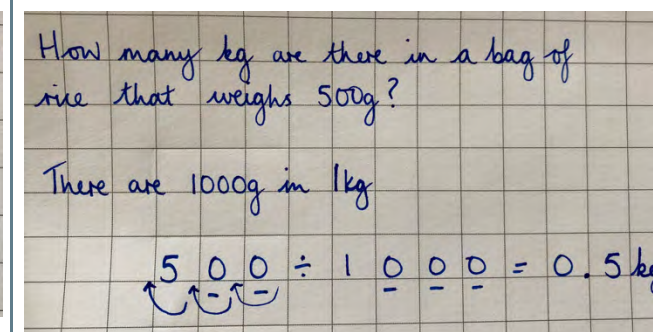 How many kg are there in a bag of
rice that weighs 500g?
There are 1000g in 1kg
500 ÷ 1000 = 0.5 kg